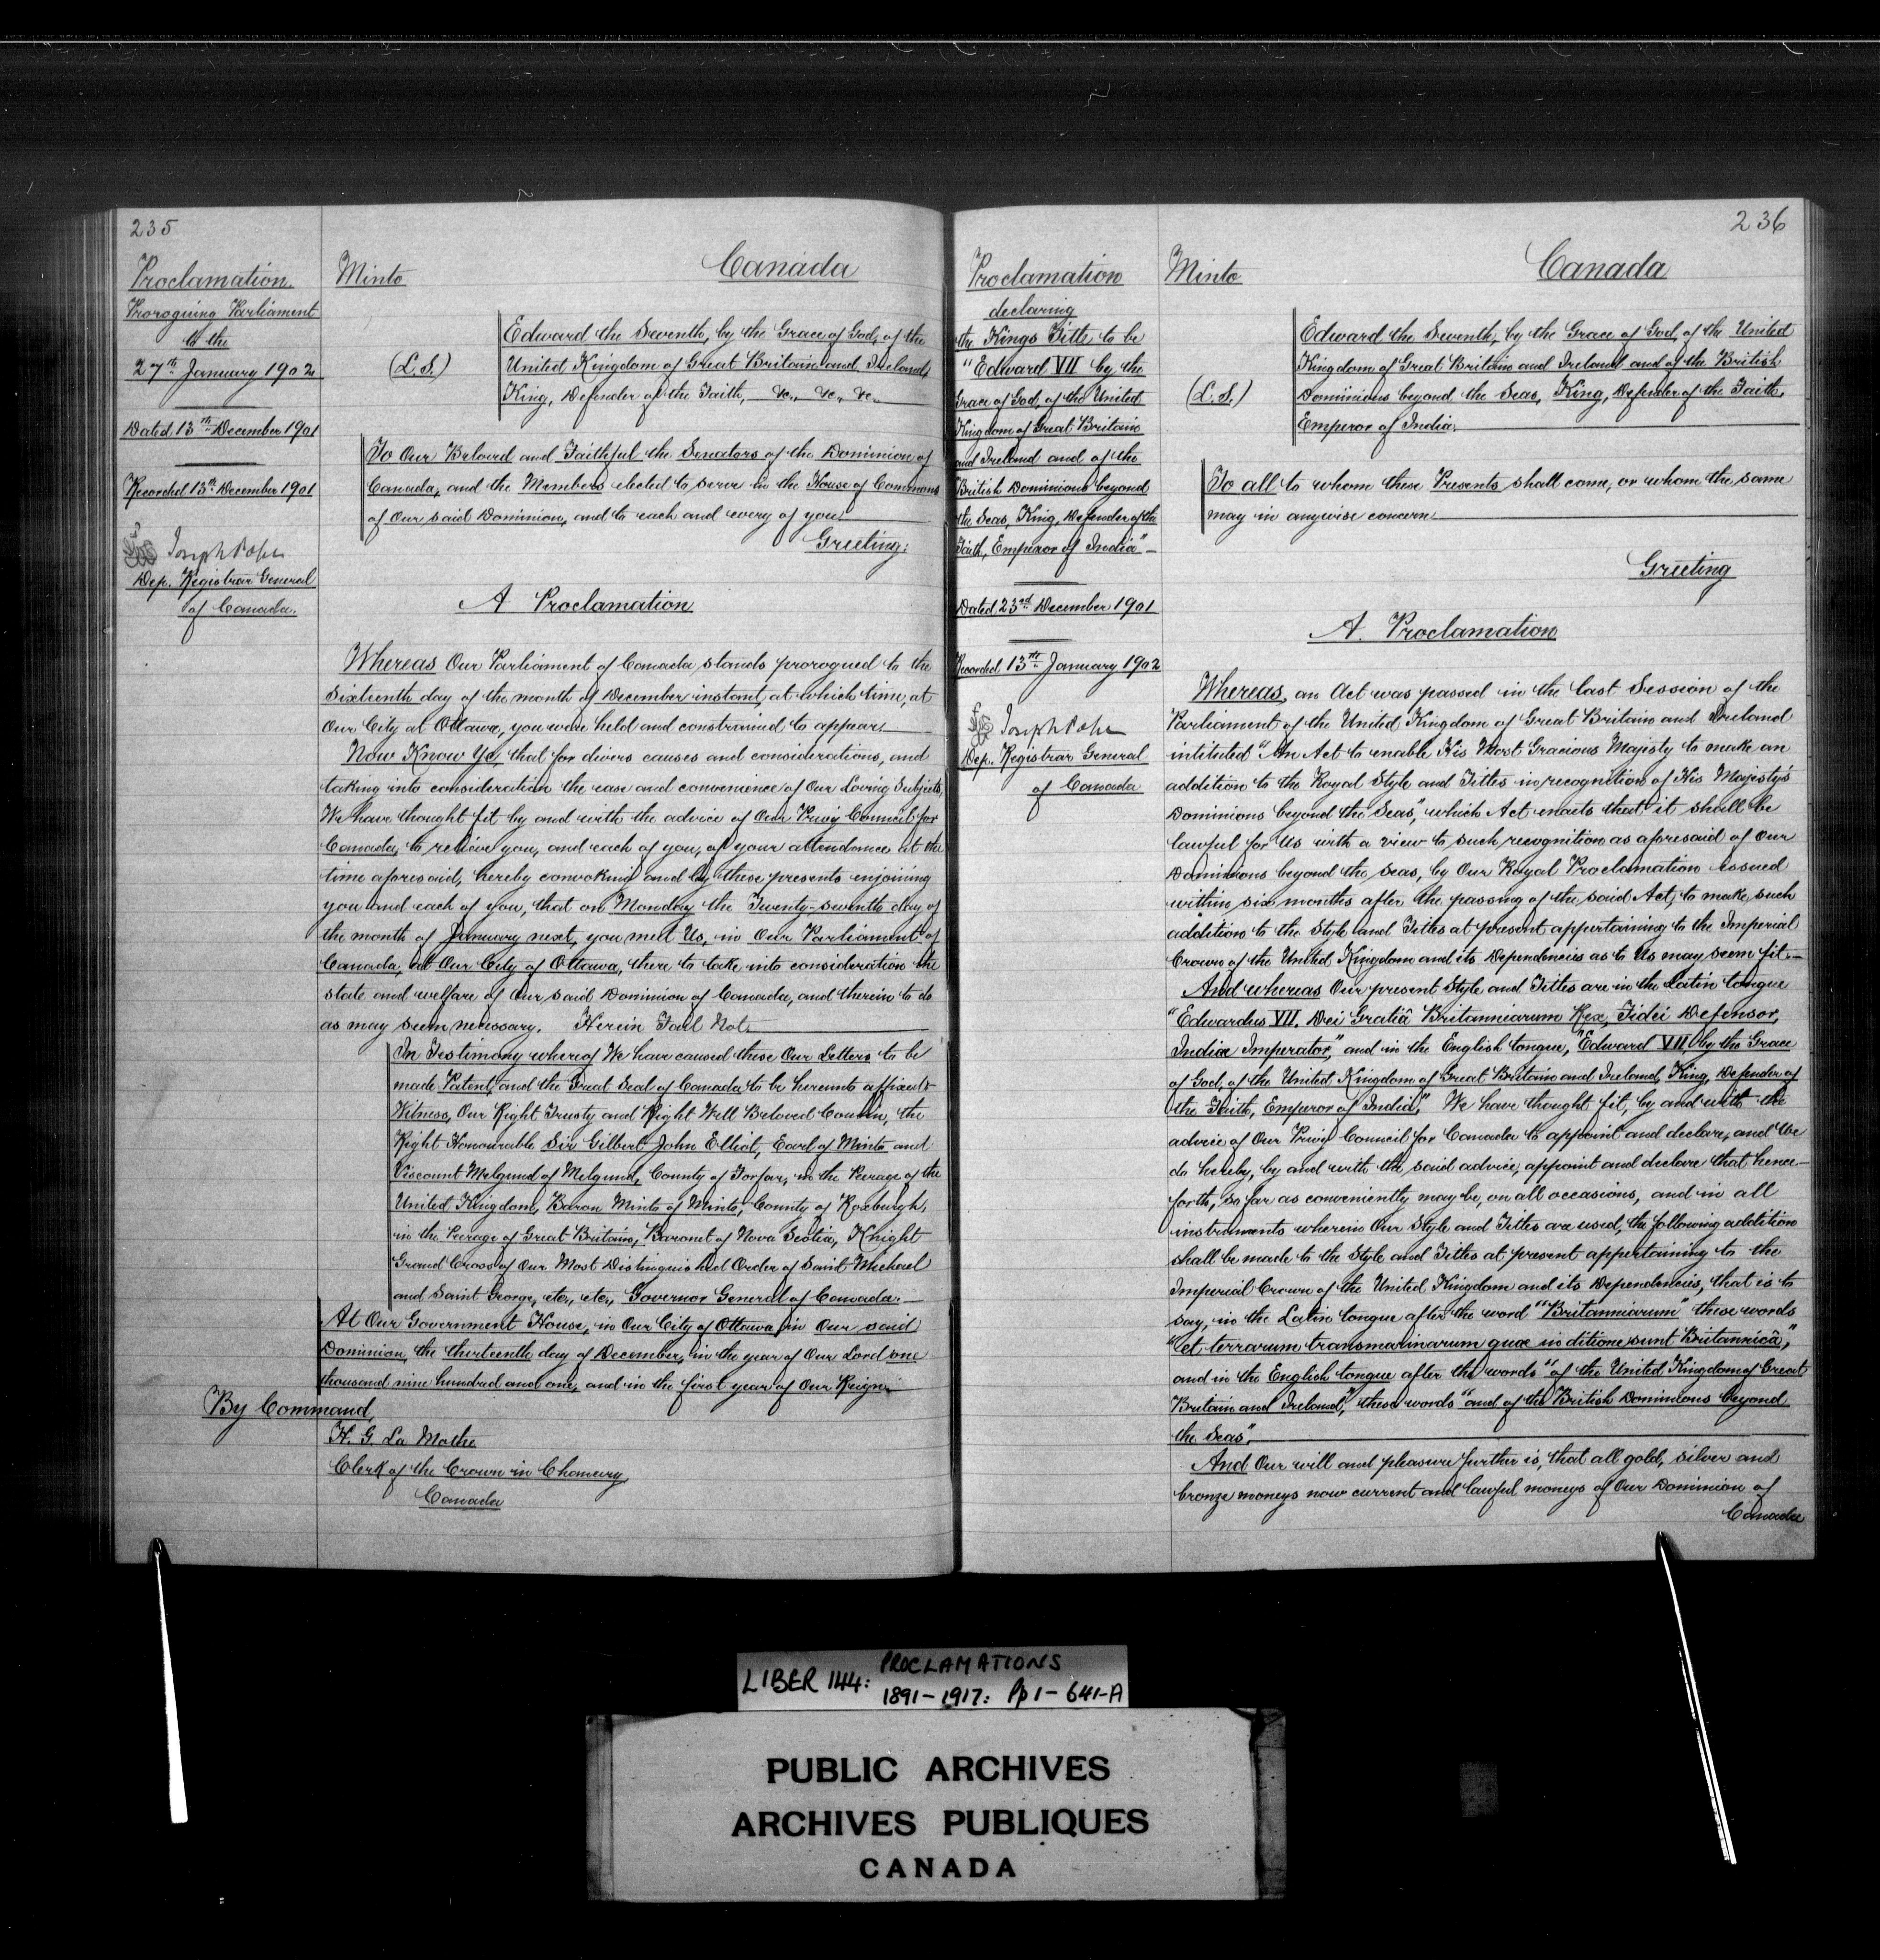 235
Proclamation.
Proroguing Parliament
to the
27th January 1902
Dated 13th December 1901
Recorded 13th December 1901
Joseph Pope
Dep. Registrar General
of Canada.
Minto
Canada
(L.S.)
Edward the Seventh, by the Grace of God, of the
United Kingdom of Great Britain and Ireland,
King, Defender of the Faith, &c., &c., &c.
To Our Beloved and Faithful the Senators of the Dominion of
Canada, and the Members elected to serve in the House of Commons
of Our said Dominion, and to each and every of you.
Greeting:
A Proclamation
Whereas Our Parliament of Canada stands prorogued to the
Sixteenth day of the month of December instant, at which time, at
Our City at Ottawa, you were held and constrained to appear.
Now Know Ye, that for divers causes and considerations, and
taking into consideration the ease and convenience of Our Loving Subjects,
We have thought fit by and with the advice of Our Privy Council for
Canada, to relieve you, and each of you, of your attendance at the
time aforesaid, hereby convoking and by these presents enjoining
you and each of you, that on Monday the Twenty-seventh day of
the month of January next, you meet Us, in Our Parliament of
Canada, at Our City of Ottawa, there to take into consideration the
state and welfare of Our said Dominion of Canada, and therein to do
as may seem necessary. Herein Fail Not.
In Testimony whereof We have caused these Our Letters to be
made Patent, and the Great Seal of Canada to be hereunto affixed:
Witness, Our Right Trusty and Right Well Beloved Cousin, the
Right Honourable Sir Gilbert John Elliot, Earl of Minto and
Viscount Melgund of Melgund, County of Forfar, in the Peerage of the
United Kingdom, Baron Minto of Minto, County of Roxburgh,
in the Peerage of Great Britain, Baronet of Nova Scotia, Knight
Grand Cross of Our Most Distinguished Order of Saint Michael
and Saint George, etc., etc., Governor General of Canada.
At Our Government House, in Our City of Ottawa, in Our said
Dominion, the thirteenth day of December, in the year of Our Lord one
thousand nine hundred and one, and in the first year of Our Reign.
By Command,
H. G. La Mothe
Clerk of the Crown in Chancery,
Canada
236
Proclamation
declaring
the Kings Title to be
"Edward VII by the
Grace of God, of the United
Kingdom of Great Britain
and Ireland and of the
British Dominions beyond
the Seas, King, Defender of the
Faith, Emperor of India"
Dated 23rd December 1901
Recorded 13th January 1902
Joseph Pope
Dep. Registrar General
of Canada
Minto
Canada
(L.S.)
Edward the Seventh, by the Grace of God, of the United
Kingdom of Great Britain and Ireland and of the British
Dominions beyond the Seas, King, Defender of the Faith,
Emperor of India.
To all to whom these Presents shall come, or whom the same
may in anywise concern.
Greeting
A. Proclamation
Whereas, an Act was passed in the last Session of the
Parliament of the United Kingdom of Great Britain and Ireland
intituled "An Act to enable His Most Gracious Majesty to make an
addition to the Royal Style and Titles in recognition of His Majesty's
Dominions beyond the Seas," which Act enacts that it shall be
lawful for Us with a view to such recognition as aforesaid of Our
Dominions beyond the Seas, by Our Royal Proclamation issued
within six months after the passing of the said Act, to make such
addition to the Style and Titles at present appertaining to the Imperial
Crown of the United Kingdom and its Dependencies as to Us may seem fit.
And whereas Our present Style and Titles are in the Latin tongue
"Edwardus VII. Dei Gratiâ Britanniarum Rex, Fidei Defensor,
Indiæ Imperator," and in the English tongue, "Edward VII, by the Grace
of God, of the United Kingdom of Great Britain and Ireland, King, Defender of
the Faith, Emperor of India," We have thought fit, by and with the
advice of Our Privy Council for Canada to appoint and declare, and We
do hereby, by and with the said advice, appoint and declare that hence-
forth, so far as conveniently may be, on all occasions, and in all
instruments wherein Our Style and Titles are used, the following addition
shall be made to the Style and Titles at present appertaining to the
Imperial Crown of the United Kingdom and its Dependencies, that is to
say, in the Latin tongue after the word "Britanniarum" these words
"et terrarum transmarinarum quæ in ditione sunt Britannicâ,"
and in the English tongue after the words "of the United Kingdom of Great
Britain and Ireland," these words "and of the British Dominions beyond
the Seas".
And Our will and pleasure further is, that all gold, silver and
bronze moneys now current and lawful moneys of Our Dominion of
Canada
LIBER 144: PROCLAMATIONS
1891-1917: Pp 1-641-A
PUBLIC ARCHIVES
ARCHIVES PUBLIQUES
CANADA